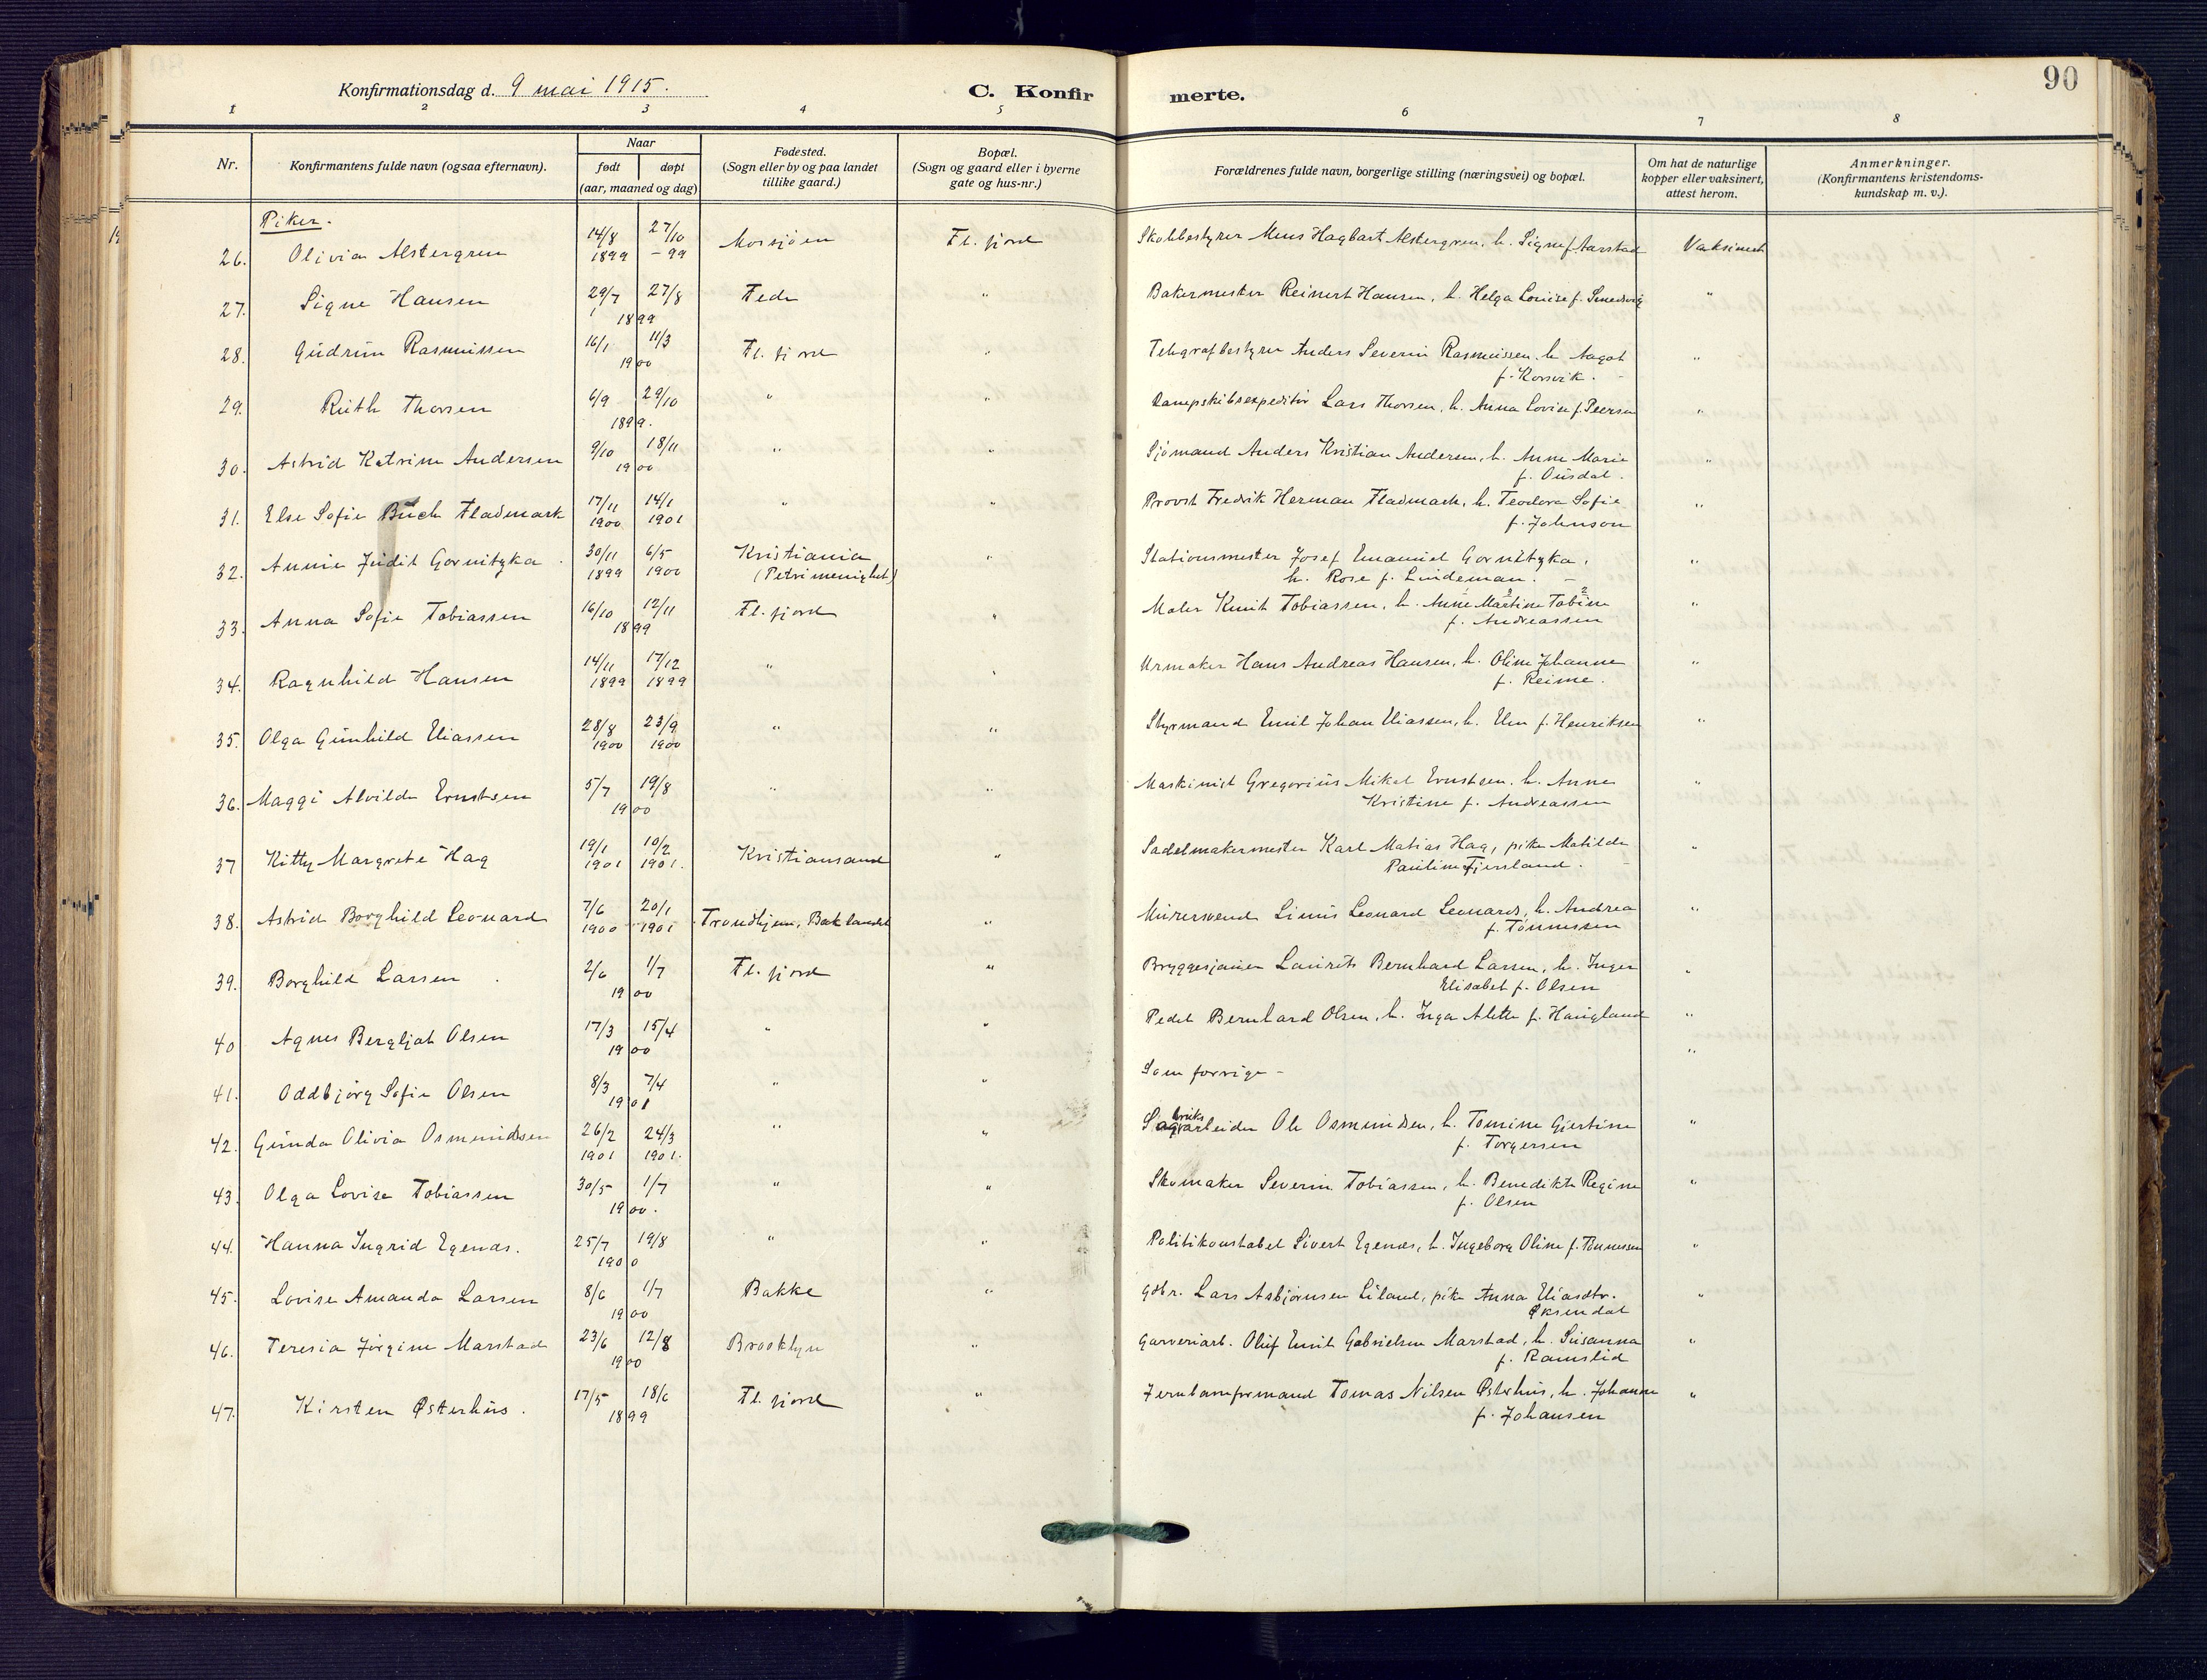 90
Konfirmationsdag d. 9 mai 1915.
C. Konfirmerte.
1 2 3 4 5 6 7 8
Nr.
Konfirmantens fulde navn (ogsaa efternavn).
Naar
født døpt
(aar, maaned og dag)
Fødested.
(Sogn eller by og paa landet
tillike gaard.)
Bopæl.
(Sogn og gaard eller i byerne
gate og hus-nr.)
Forældrenes fulde navn, borgerlige stilling (næringsvei) og bopæl.
Om hat de naturlige
kopper eller vaksinert,
attest herom.
Anmerkninger.
(Konfirmantens kristendoms-
kundskap m. v.).
Piker.
26. Olivia Alstergren 14/8 1899 27/10 -99 Mosjøen Fl. fjord Skolebestyrer Mens Hagbart Alstergren, h. Signe f. Aarstad Vaksinert
27. Signe Hansen 29/7 27/8 1899 Feda " Bakermester Reinert Hansen, h. Helga Louise f. Smedsvig "
28. Gudrun Rasmussen 16/1 11/3 1900 Fl. fjord " Telegrafbestyrer Anders Severin Rasmussen, h. Aagot
f. Korsvik. "
29. Ruth Thorsen 6/9 29/10 1899. " " Dampskibsexpeditør Lars Thorsen, h. Anna Lovise f. Peersen "
30. Astrid Katrine Andersen 9/10 18/11 1900 " " Sjømand Anders Kristian Andersen, h. Anne Marie
f. Ousdal. "
31. Else Sofie Buch Fladmark 17/11 1900 14/1 1901 " " Provst Fredrik Herman Fladmark, h. Teodora Sofie
f. Johnson "
32. Annie Judit Gornitzka 30/11 1899 6/5 1900 Kristiania
(Petri menighet) " Stationsmester Josef Emanuel Gornitzka,
h. Rose f. Lindeman. "
33. Anna Sofie Tobiassen 16/10 12/11 1899 Fl. fjord " Maler Knut Tobiassen, h. Anne Martine Tobine
f. Andreassen "
34. Ragnhild Hansen 14/11 1899 17/12 1899 " " Urmaker Hans Andreas Hansen, h. Oline Johanne
f. Reime. "
35. Olga Gunhild Eliassen 28/8 1900 23/9 1900 " " Styrmand Emil Johan Eliassen, h. Elen f. Henriksen "
36. Maggi Alvilde Ernstsen 5/7 19/8 1900 " " Maskinist Gregorius Mikal Ernstsen, h. Anne
Kristine f. Andreassen "
37 Kitty Margrete Hag 19/1 1901 10/2 1901. Kristiansand " Sadelmakermester Karl Matias Hag, pike Matilde
Pauline Fjersland. "
38. Astrid Borghild Leonard 7/6 1900 20/1 1901 Trondhjem, Baklandet " Murersvend Linus Leonard Leonards, h. Andrea
f. Tønnessen "
39. Borghild Larsen 2/6 1/7 1900 Fl. fjord " Bryggesjauer Laurits Bernhard Larsen, h. Inger
Elisabet f. Olsen "
40 Agnes Bergljot Olsen 17/3 15/4 1900 " " Pedel Bernhard Olsen, h. Inga Alette f. Haugland "
41. Oddbjørg Sofie Olsen 8/3 7/4 1901 " " Som forrige - "
42. Gunda Olivia Osmundsen 26/2 1901 24/3 1901. " " Sagbruksarbeider Ole Osmundsen, h. Tomine Gjertine
f. Torgersen "
43. Olga Lovise Tobiassen 30/5 1/7 1900. " " Skomaker Severin Tobiassen, h. Benedikte Regine
f. Olsen "
44. Hanna Ingrid Egenæs. 25/7 19/8 1900 " " Politikonstabel Sivert Egenæs, h. Ingeborg Oline f. Tønnessen "
45. Lovise Amanda Larsen 8/6 1/7 1900 Bakke " Gdbr. Lars Asbjørnsen Liland, pike Anna Eliasdtr.
Øksendal "
46. Teresia Jørgine Marstad 23/6 12/8 1900 Brooklyn " Garveriarb. Oluf Emil Gabrielsen Marstad, h. Susanna
f. Ramslid "
47. Kirsten Østerhus. 17/5 18/6 1899 Fl. fjord " Jernbaneformand Tomas Nilsen Østerhus, h. Johanne
f. Johansen "